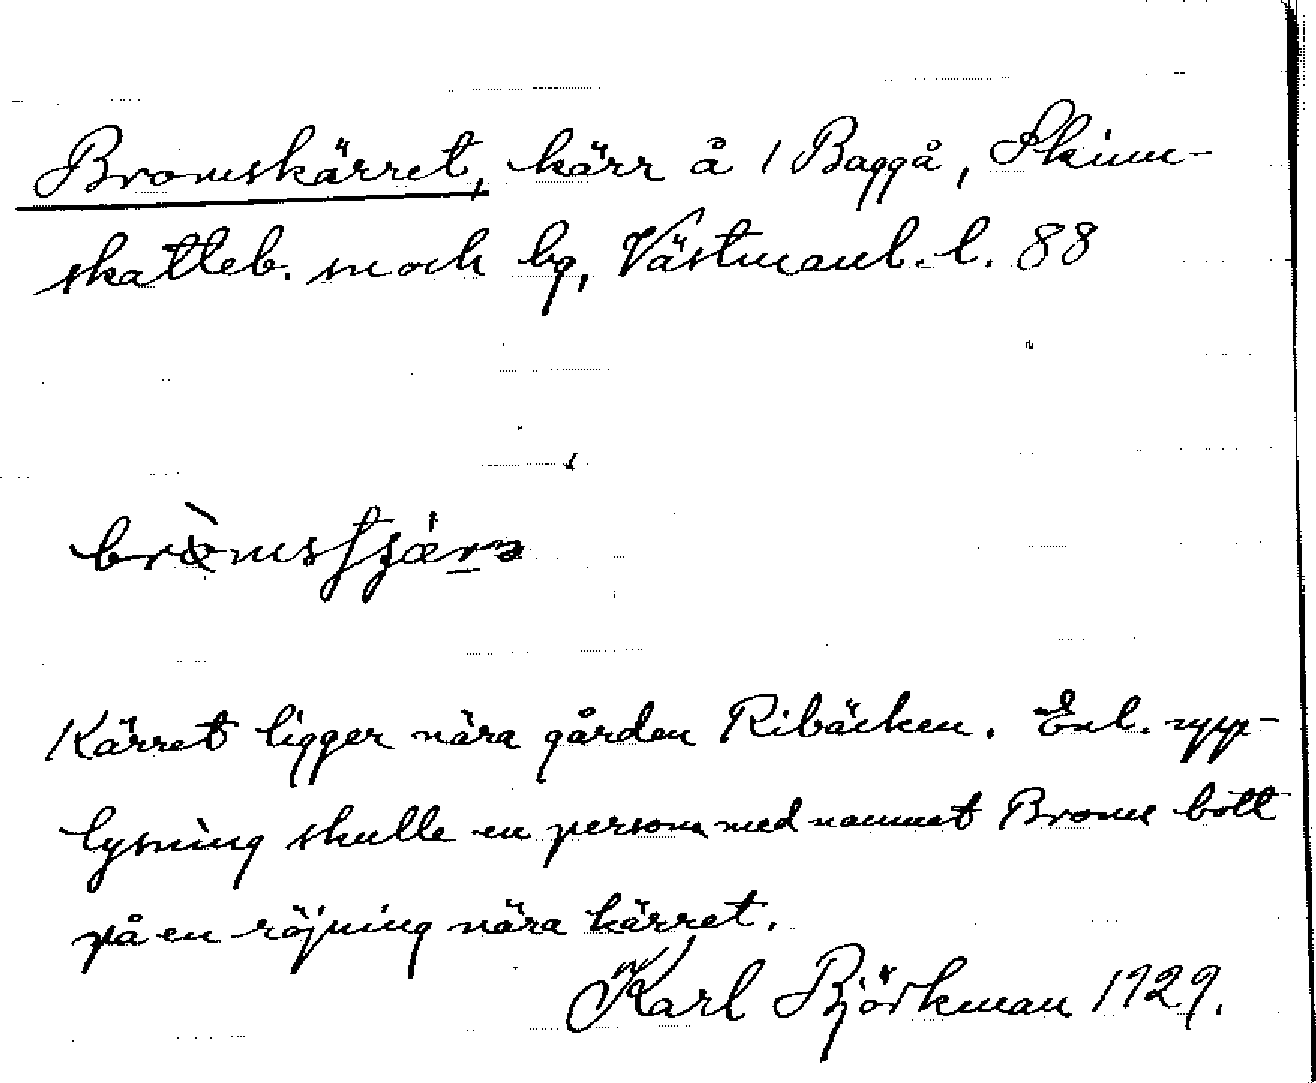 Bromskärret, kärr å 1 Baggå, Skinn-
skatteb. sn och bg, Västmanl. l. 88
Kärret ligger nära gården Ribäcken. Enl. upp-
lysning skulle en person med namnet Brome bott
på en röjning nära kärret.
Karl Björkman 1929.